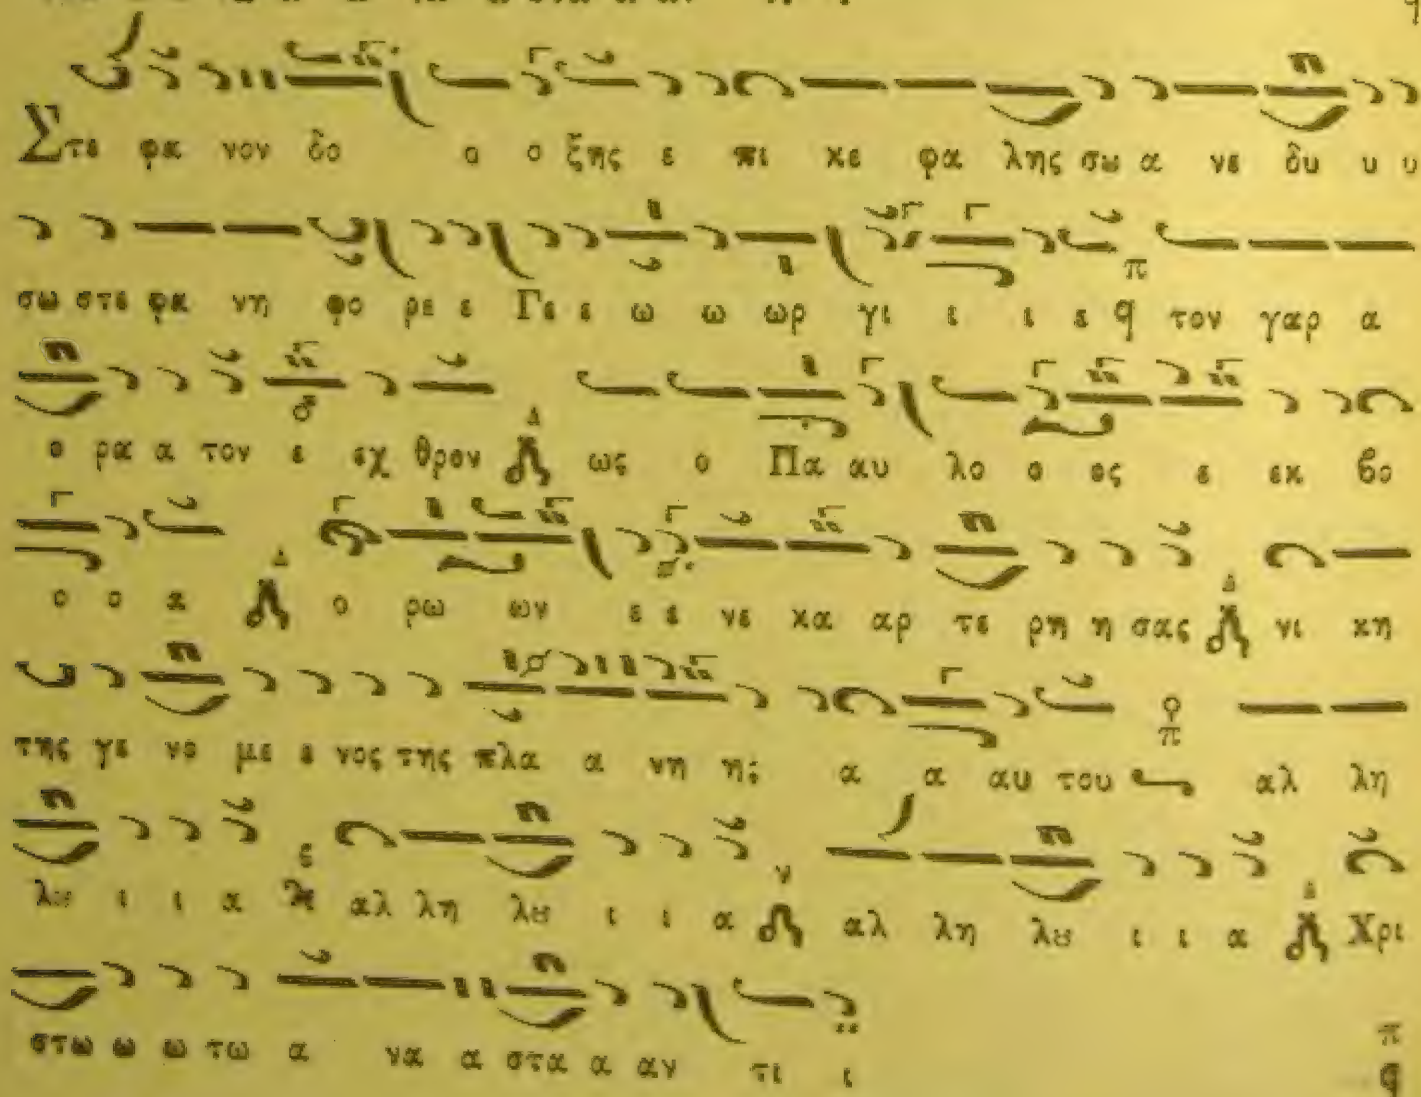 Στε φα νον δο ο ο ξης ε πι κε φα λης σω α νε δυ υ υ
σω στε φα νη φο ρε ε Γε ε ω ω ωρ γι ι ι ε τον γαρ α
ο ρα α τον ε εχ θρον ως ο Πα αυ λο ο ος ε εκ βο
ο ο α ο ρω ων ε ε νε κα αρ τε ρη η σας νι κη
της γε νο με ε νος της πλα α νη ης α α αυ του αλ λη
λȣ ι ι α αλ λη λȣ ι ι α αλ λη λȣ ι ι α Χρι
στω ω ω τω α να α στα α αν τι ι